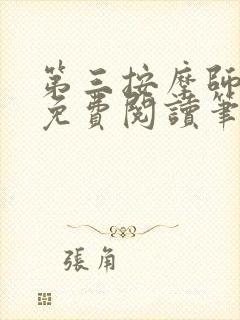 第三按摩師
免費閱讀筆
張角